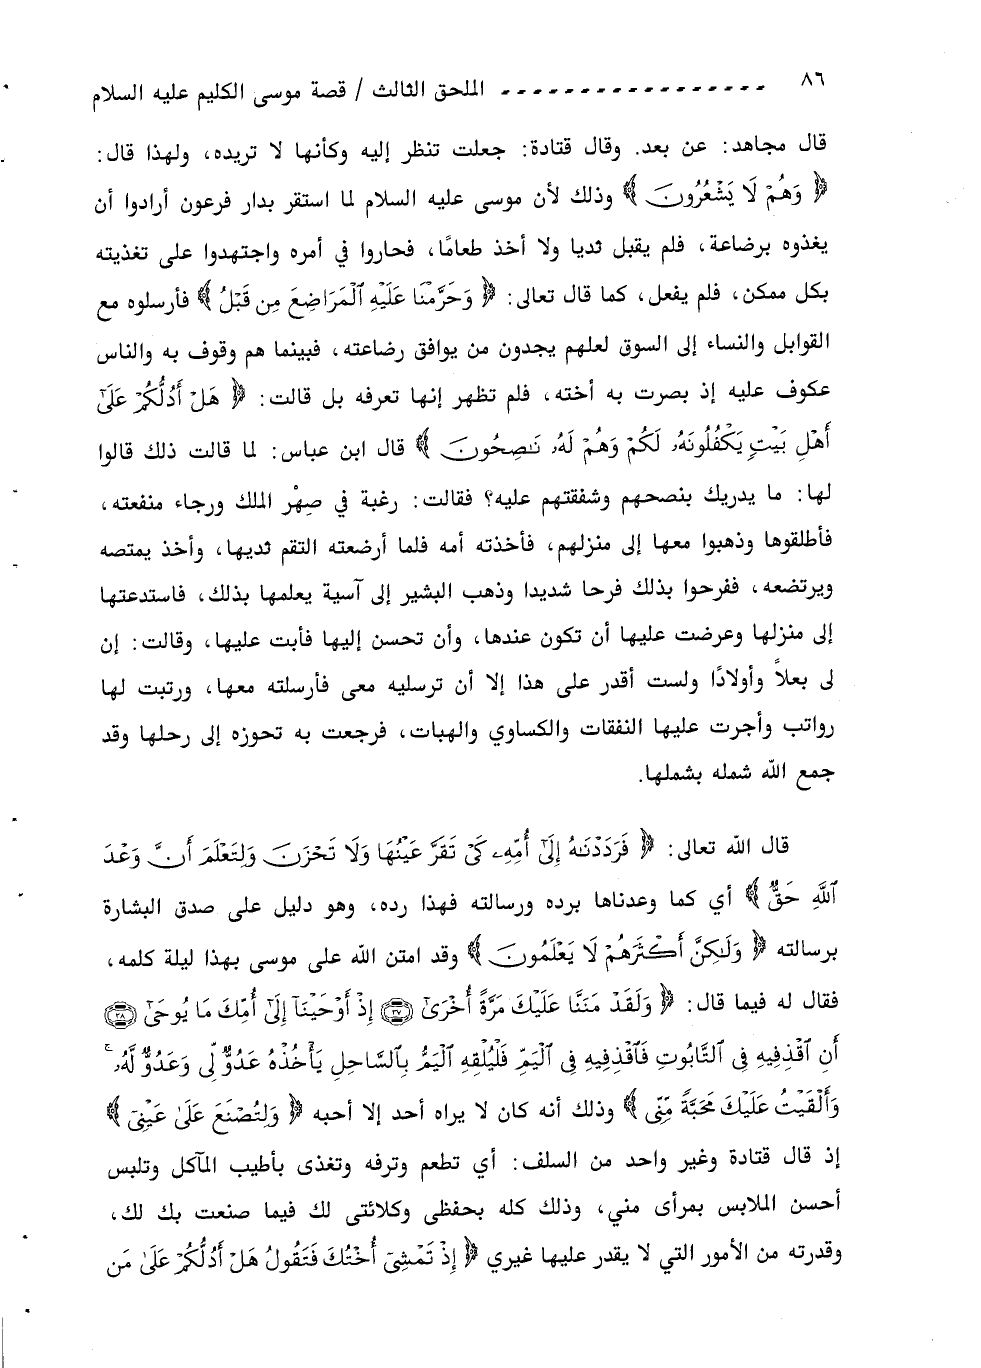 ٨٦ ـ ـ ـ ـ ـ ـ ـ ـ ـ ـ ـ ـ ـ ـ ـ ـ ـ الملحق الثالث / قصة موسى الكليم عليه السلام
قال مجاهد: عن بعد. وقال قتادة: جعلت تنظر إليه وكأنها لا تريده، ولهذا قال:
﴿ وَهُمْ لَا يَشْعُرُونَ ﴾ وذلك لأن موسى عليه السلام لما استقر بدار فرعون أرادوا أن
يغذوه برضاعة، فلم يقبل ثديا ولا أخذ طعامًا، فحاروا في أمره واجتهدوا على تغذيته
بكل ممكن، فلم يفعل، كما قال تعالى: ﴿ وَحَرَّمْنَا عَلَيْهِ ٱلْمَرَاضِعَ مِن قَبْلُ ﴾ فأرسلوه مع
القوابل والنساء إلى السوق لعلهم يجدون من يوافق رضاعته، فبينما هم وقوف به والناس
عكوف عليه إذ بصرت به أخته، فلم تظهر إنها تعرفه بل قالت: ﴿ هَلْ أَدُلُّكُمْ عَلَىٰٓ
أَهْلِ بَيْتٍ يَكْفُلُونَهُۥ لَكُمْ وَهُمْ لَهُۥ نَـٰصِحُونَ ﴾ قال ابن عباس: لما قالت ذلك قالوا
لها: ما يدريك بنصحهم وشفقتهم عليه؟ فقالت: رغبة في صِهْر الملك ورجاء منفعته،
فأطلقوها وذهبوا معها إلى منزلهم، فأخذته أمه فلما أرضعته التقم ثديها، وأخذ يمتصه
ويرتضعه، ففرحوا بذلك فرحا شديدا وذهب البشير إلى آسية يعلمها بذلك، فاستدعتها
إلى منزلها وعرضت عليها أن تكون عندها، وأن تحسن إليها فأبت عليها، وقالت: إن
لى بعلاً وأولادًا ولست أقدر على هذا إلا أن ترسليه معى فأرسلته معها، ورتبت لها
رواتب وأجرت عليها النفقات والكساوي والهبات، فرجعت به تحوزه إلى رحلها وقد
جمع الله شمله بشملها.
قال الله تعالى: ﴿ فَرَدَدْنَـٰهُ إِلَىٰٓ أُمِّهِۦ كَىْ تَقَرَّ عَيْنُهَا وَلَا تَحْزَنَ وَلِتَعْلَمَ أَنَّ وَعْدَ
ٱللَّهِ حَقٌّ ﴾ أي كما وعدناها برده ورسالته فهذا رده، وهو دليل على صدق البشارة
برسالته ﴿ وَلَـٰكِنَّ أَكْثَرَهُمْ لَا يَعْلَمُونَ ﴾ وقد امتن الله على موسى بهذا ليلة كلمه،
فقال له فيما قال: ﴿ وَلَقَدْ مَنَنَّا عَلَيْكَ مَرَّةً أُخْرَىٰٓ ٣٧ إِذْ أَوْحَيْنَآ إِلَىٰٓ أُمِّكَ مَا يُوحَىٰٓ ٣٨
أَنِ ٱقْذِفِيهِ فِى ٱلتَّابُوتِ فَٱقْذِفِيهِ فِى ٱلْيَمِّ فَلْيُلْقِهِ ٱلْيَمُّ بِٱلسَّاحِلِ يَأْخُذْهُ عَدُوٌّ لِّى وَعَدُوٌّ لَّهُۥ ۚ
وَأَلْقَيْتُ عَلَيْكَ مَحَبَّةً مِّنِّى ﴾ وذلك أنه كان لا يراه أحد إلا أحبه ﴿ وَلِتُصْنَعَ عَلَىٰ عَيْنِىٓ ﴾
إذ قال قتادة وغير واحد من السلف: أي تطعم وترفه وتغذى بأطيب المآكل وتلبس
أحسن الملابس بمرأى مني، وذلك كله بحفظى وكلائتى لك فيما صنعت بك لك،
وقدرته من الأمور التي لا يقدر عليها غيري ﴿ إِذْ تَمْشِىٓ أُخْتُكَ فَتَقُولُ هَلْ أَدُلُّكُمْ عَلَىٰ مَن